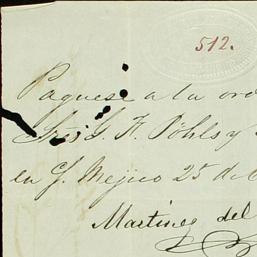 512.
Paguese a la ord
Sres G. H. Pöhls y
en Mejico 25 de
Martinez del